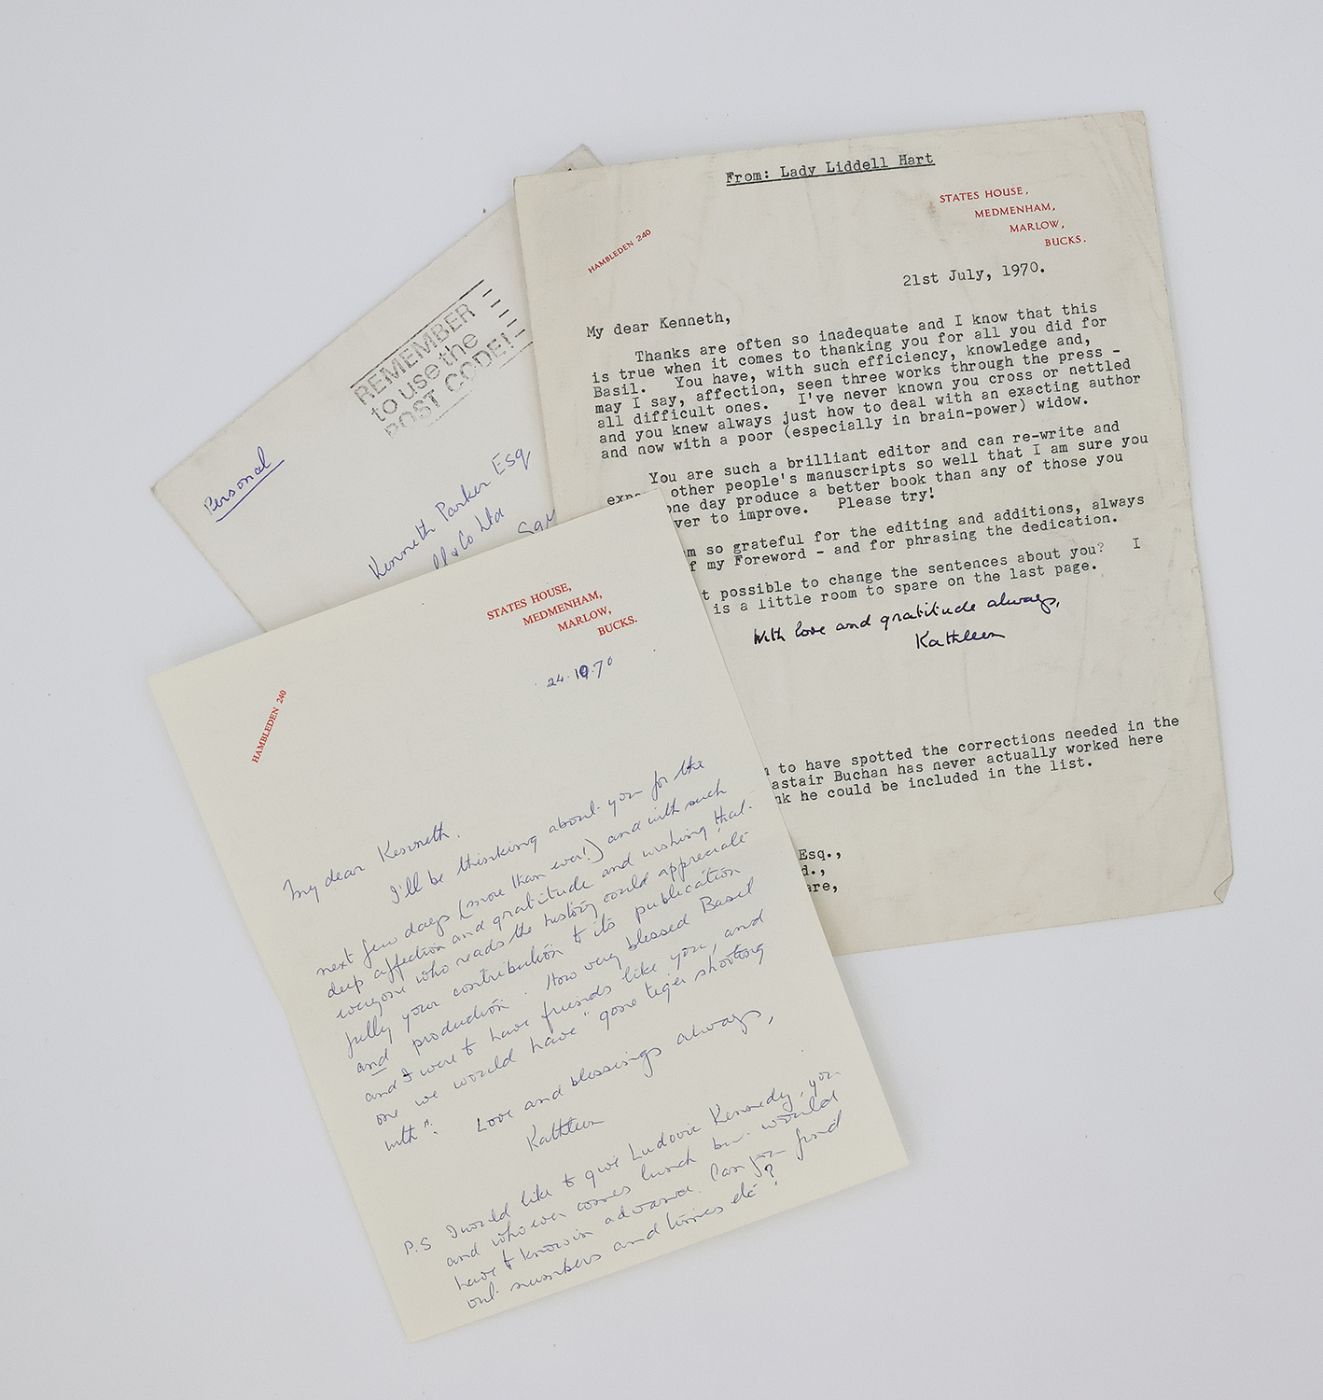 From: Lady Liddell Hart
HAMBLEDEN 240
STATES HOUSE,
MEDMENHAM,
MARLOW,
BUCKS.
21st July, 1970.
My dear Kenneth,
Thanks are often so inadequate and I know that this
is true when it comes to thanking you for all you did for
Basil. You have, with such efficiency, knowledge and,
may I say, affection, seen three works through the press -
all difficult ones. I've never known you cross or nettled
and you knew always just how to deal with an exacting author
and now with a poor (especially in brain-power) widow.
You are such a brilliant editor and can re-write and
other people's manuscripts so well that I am sure you
one day produce a better book than any of those you
ver to improve. Please try!
m so grateful for the editing and additions, always
f my Foreword - and for phrasing the dedication.
t possible to change the sentences about you? I
is a little room to spare on the last page.
With love and gratitude always,
Kathleen
to have spotted the corrections needed in the
astair Buchan has never actually worked here
nk he could be included in the list.
Esq.,
d.,
re,
REMEMBER
to use the
POST CODE!
Personal
Kenneth Parker Esq
ll & Co Ltd
Sq
STATES HOUSE,
MEDMENHAM,
MARLOW,
BUCKS.
HAMBLEDEN 240
24.10.70
My dear Kenneth.
I'll be thinking about you for the
next few days (more than ever!) and with such
deep affection and gratitude and wishing that
everyone who reads the history could appreciate
fully your contribution to its publication
and production. How very blessed Basil
and I were to have friends like you, and
one we would have "gone tiger shooting
with".
Love and blessings always,
Kathleen
P.S I would like to give Ludovic Kennedy, you
and whoever comes lunch but would
have to know in advance. Can you find
out numbers and times etc?